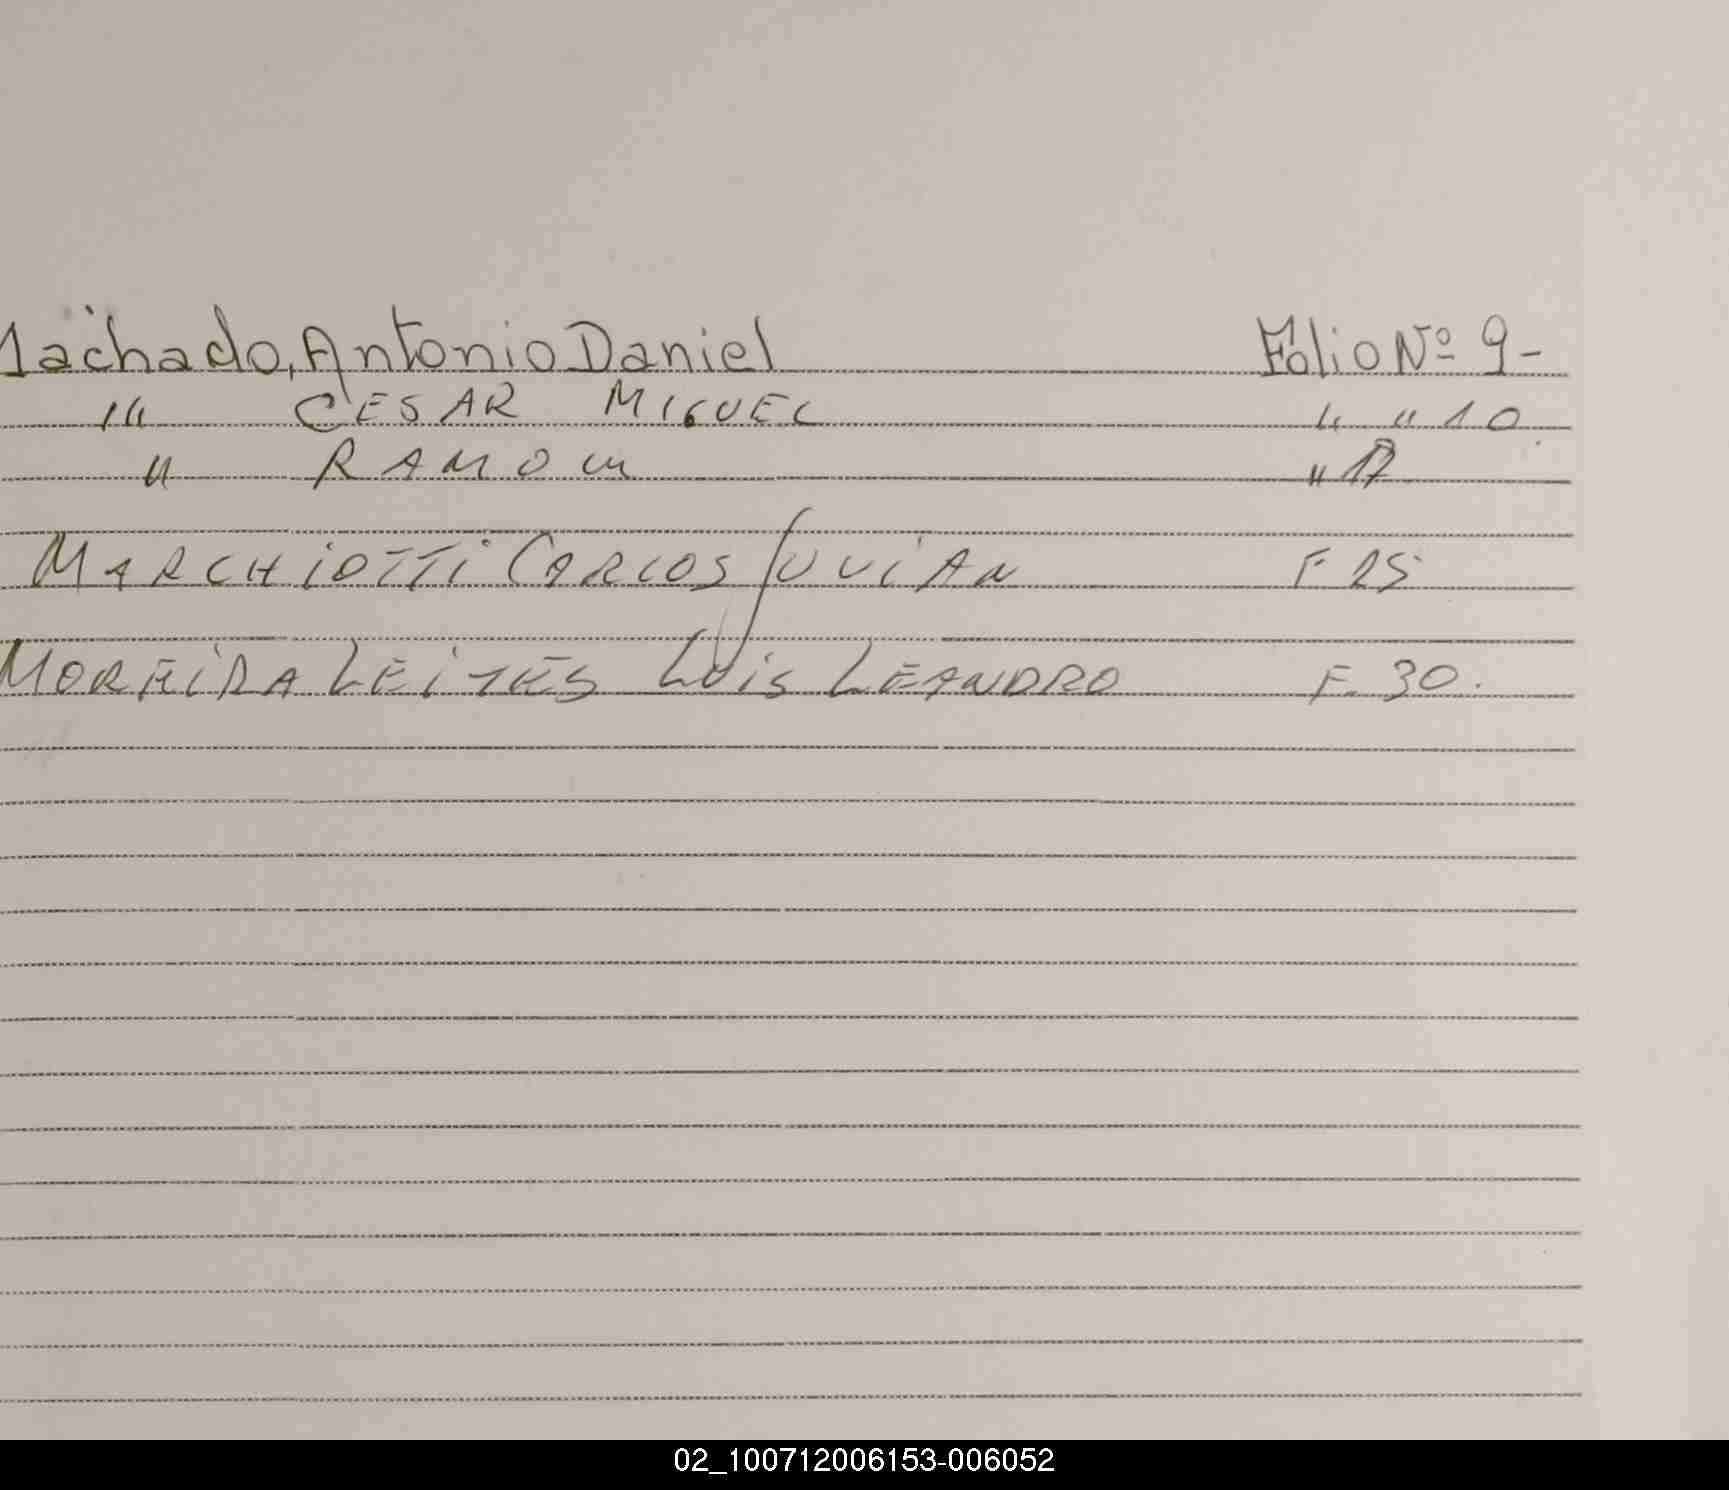 Machado, Antonio Daniel Folio Nº 9-
" CESAR MIGUEL " " 10
" RAMON " 17
MARCHIOTTI CARLOS F 25
MOREIRA LEITES LUIS LEANDRO F. 30.
02_100712006153-006052